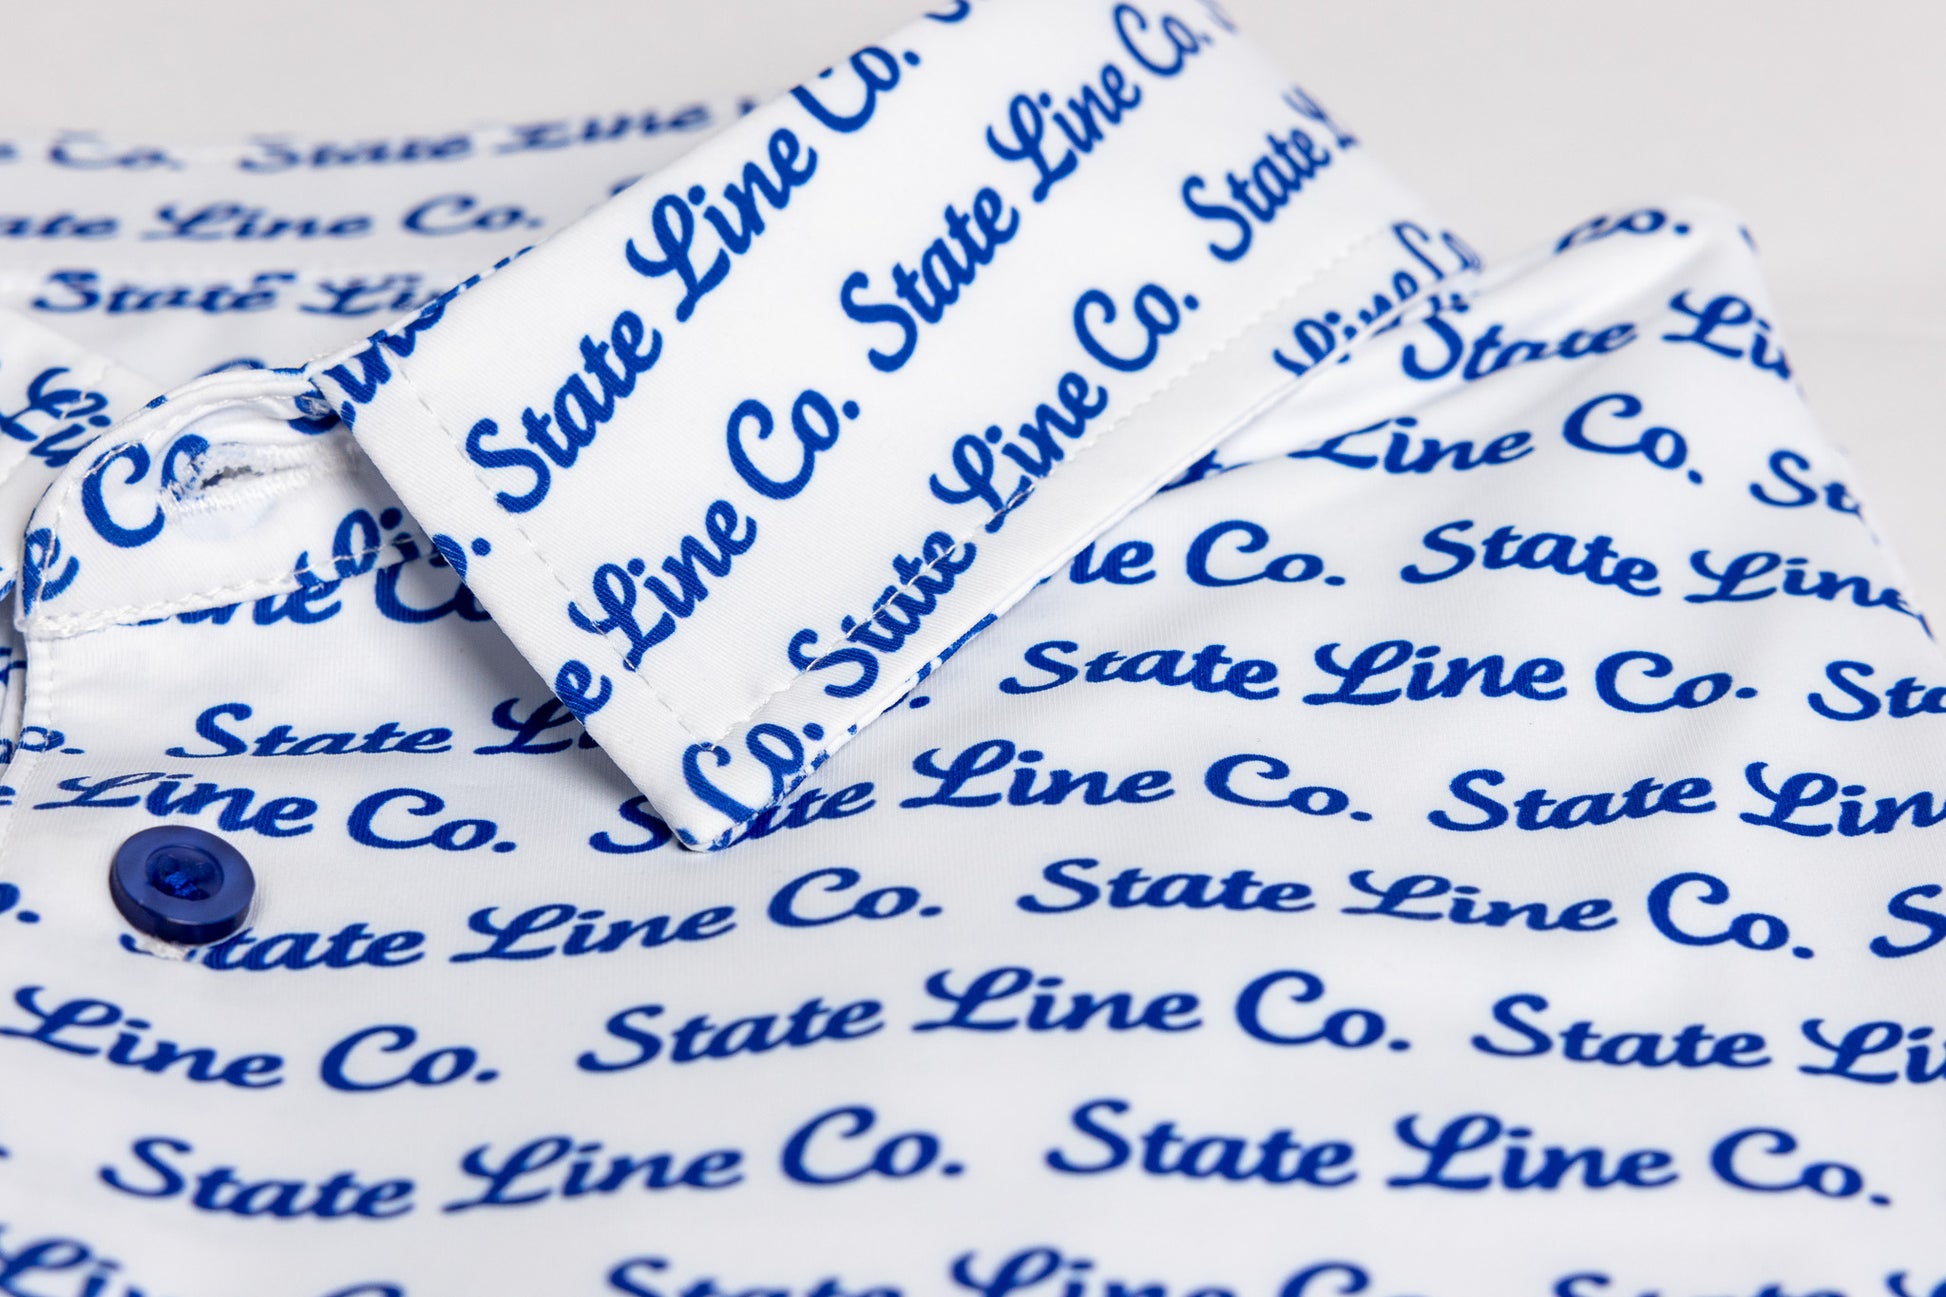 Co. State Line
State Line Co.
State
State Line Co.
State Line Co. State Line Co. State
State Line Co.
Line Co.
Line Co.
Co.
State Line
Line Co.
Co. State Line
State Line Co.
State
Line Co. Line Co. State Line
State Line Co. State Line Co.
Line Co. State Line Co. State
State Line Co. State Line Co.
State Line Co. State Line Co.
State Line Co. State